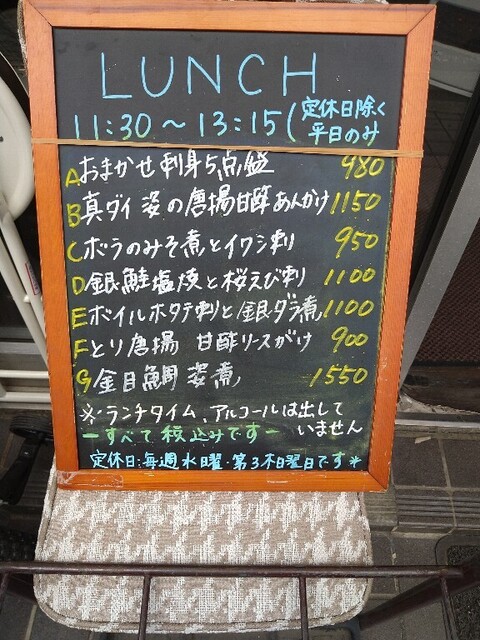 LUNCH
11:30~13:15(定休日除く
平日のみ
Aおまかせ刺身5点盛 980
B真ダイ姿の唐揚甘酢あんかけ 1150
Cボラのみそ煮とイワシ刺 950
D銀鮭塩焼と桜えび刺 1100
Eボイルホタテ刺と銀ダラ煮 1100
Fとり唐揚 甘酢リースがけ 900
G金目鯛 姿煮 1550
※ランチタイム、アルコールは出して
いません
ーすべて税込みですー
定休日:毎週水曜・第3木曜日です*